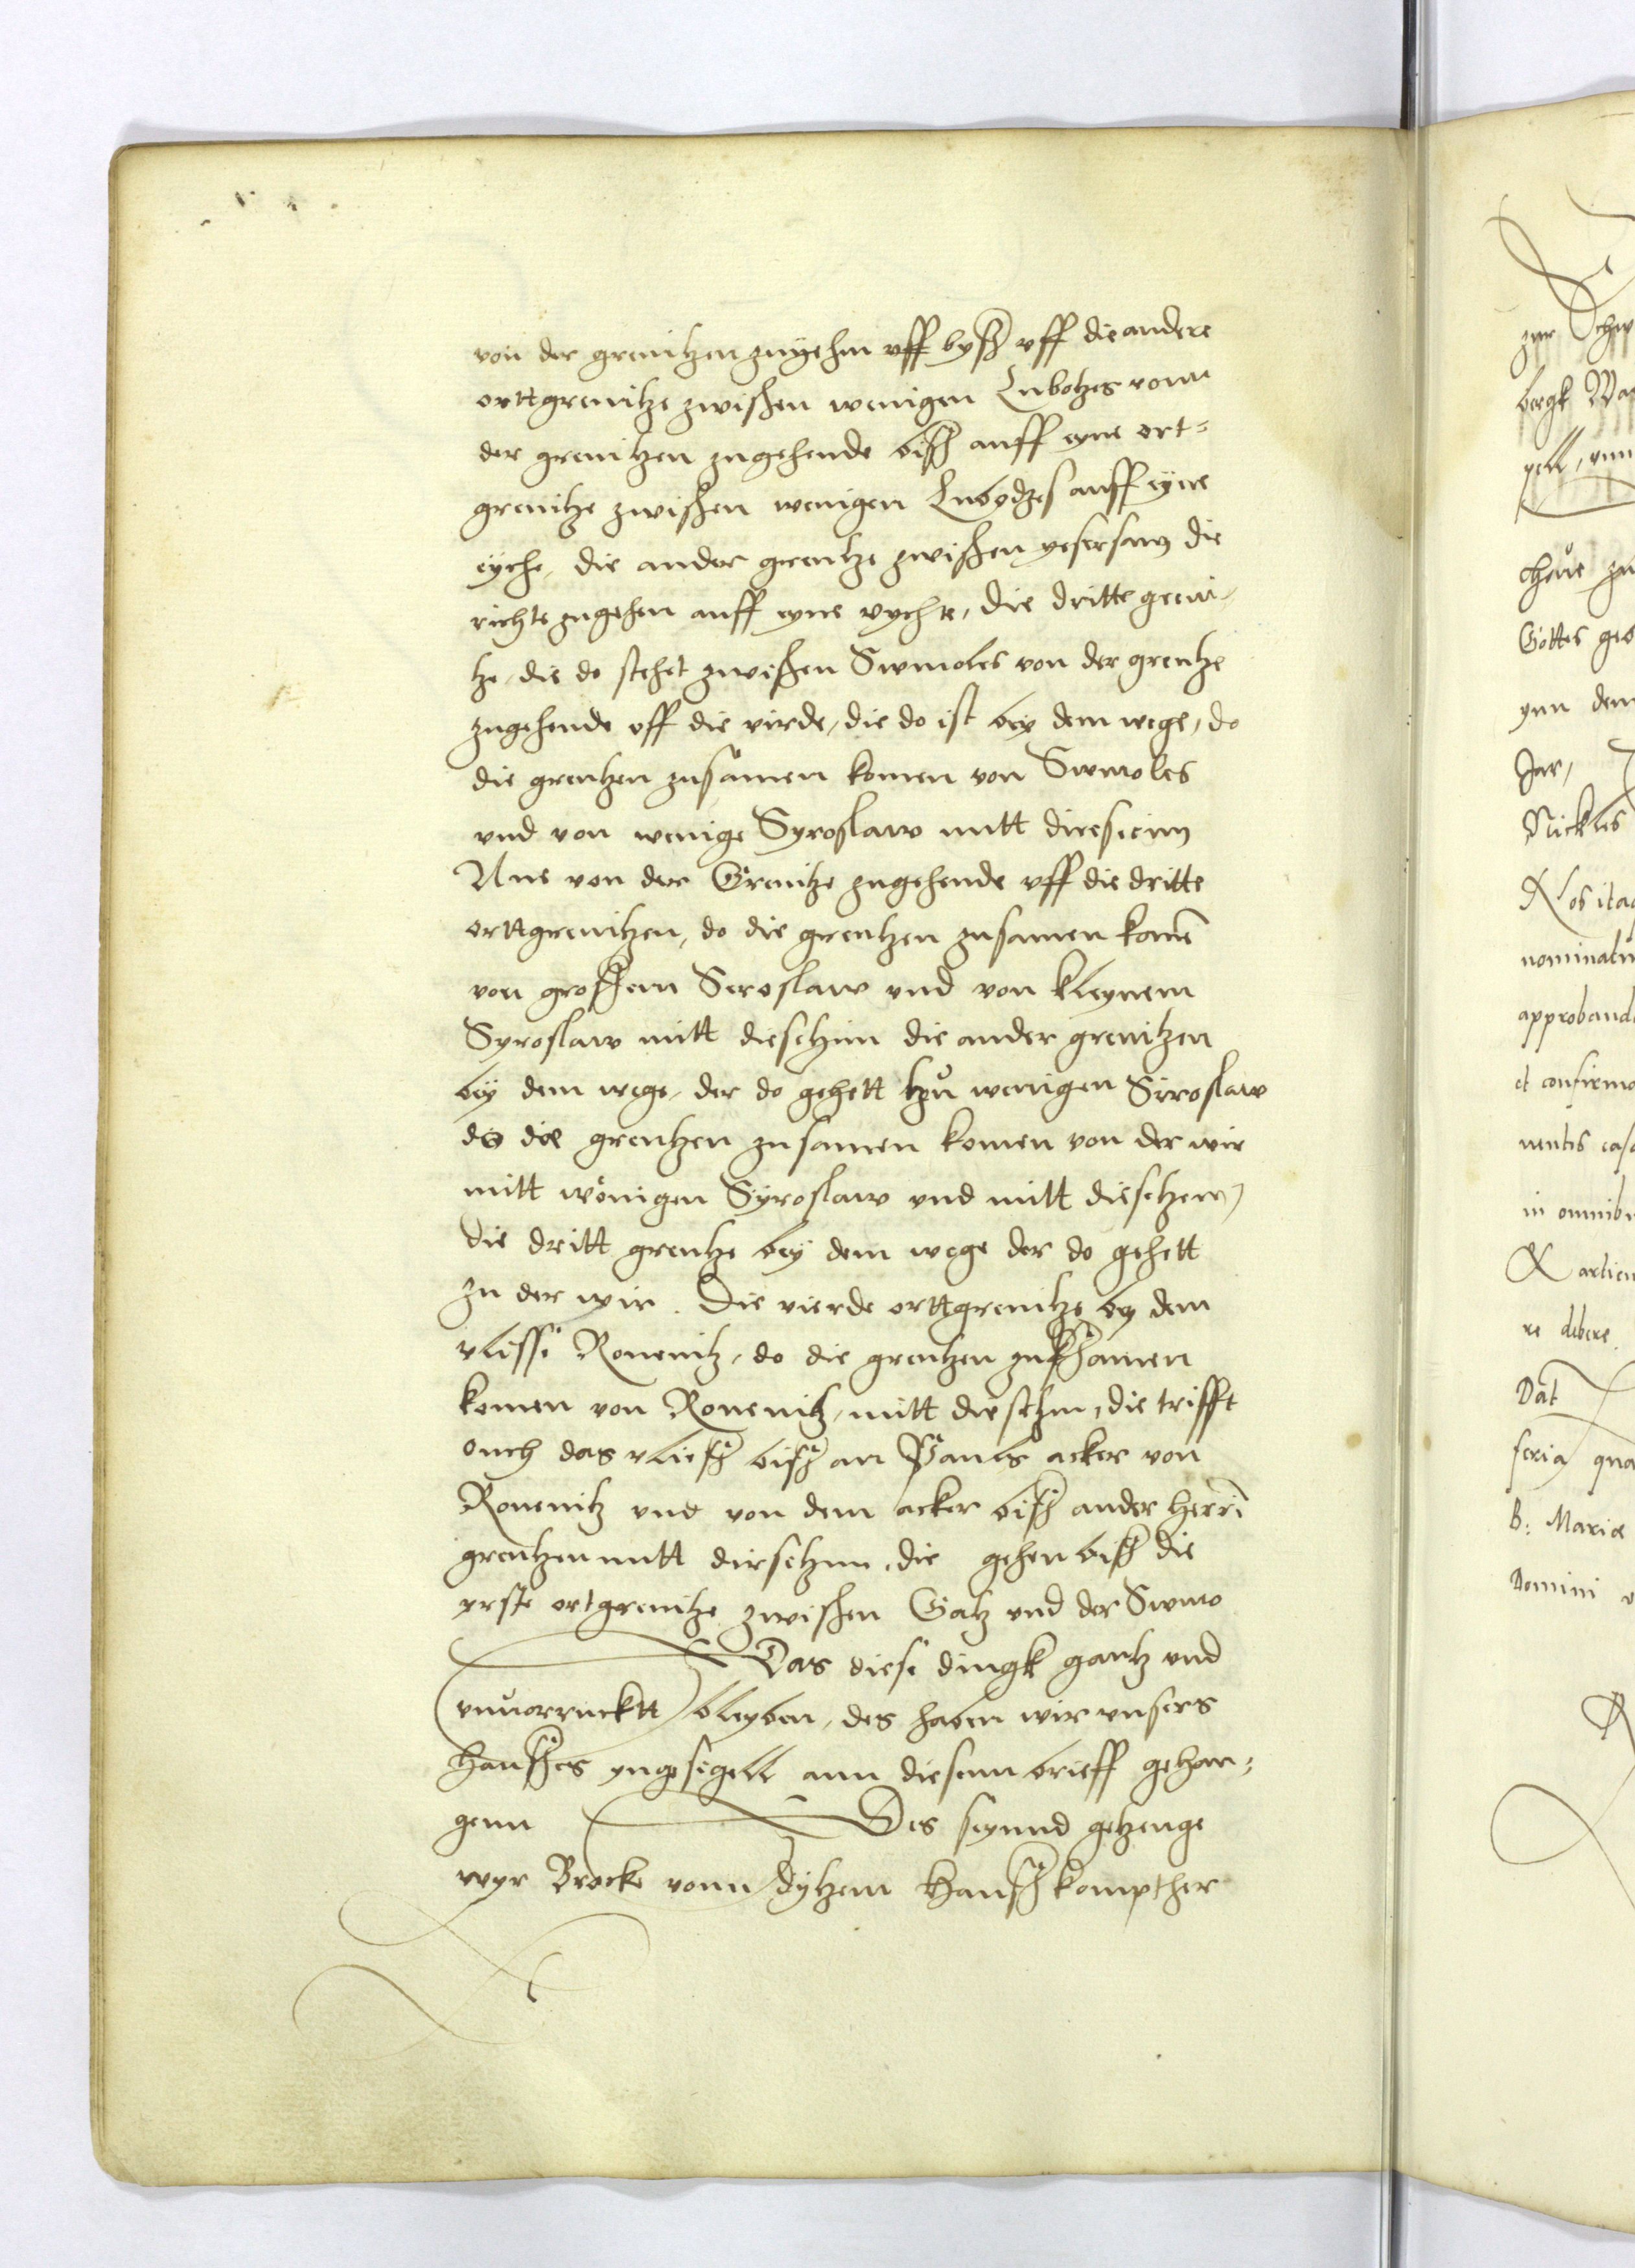 von der grenitzen zuyehm uff byß uff die andere
ortt grenitze zwischen wenigen Lubotzes vonn
der grenitzen zugehende biß auff eyne ort=
grenitze zwischen wenigen Lubodzes auff eyne
eyche, die ander grentze zwischen die
richte zugehen auff eyne vychte, die dritte greni-
tze, die do stehet zwischen Swmoles von der grentze
zugehende uff die virde, die do ist bey dem wege, do
die grentzen zusamen komen von Swmoles
und von wenige Syroslaw mitt
Nue von der Grenitze zugehende uff die dritte
orttgrenitzen, do die grentzen zusamen komē
von großem Seroslaw und von kleynem
Syroslaw mitt dieschim die ander grenitzen
bey dem wege, der do gehett tzu wenigen Siroslaw
do die grentzen zusamen komen von der wir
mitt wenigen Syroslaw und mitt dieschem,
die dritt grentze bey dem wege der do gehett
zu der wyr. Die vierde orttgrenitze bey dem
vlissi Ronenitz, do die grentzen zusamen
komen von Ronenitz, mitt dieschm, die trifft
ouch das vließ biß an Pauls acker von
Ronenitz und von dem acker biß ander Herrī
grentzen mitt dirschim, die gehen biß die
yrste ortgrenitze zwischen Galz und der Swmo
Das diese dingk gantz und
unuorrucktt bleyben, des haben wir unsers
Haußes yngesigell ann diesenn brieff gehan=
genn Des seynnd gezeuge
wyr Brocke vonn dytzem Hauß kompther
zur
bergk
yell, unn
zu
Gottes geb
ynn dem
Jar,
Nickles
Nos itaq
nominatu
approbando
et confirma
in omnibu
re debere.
Dat
feria qua
B: Mariæ
Domini